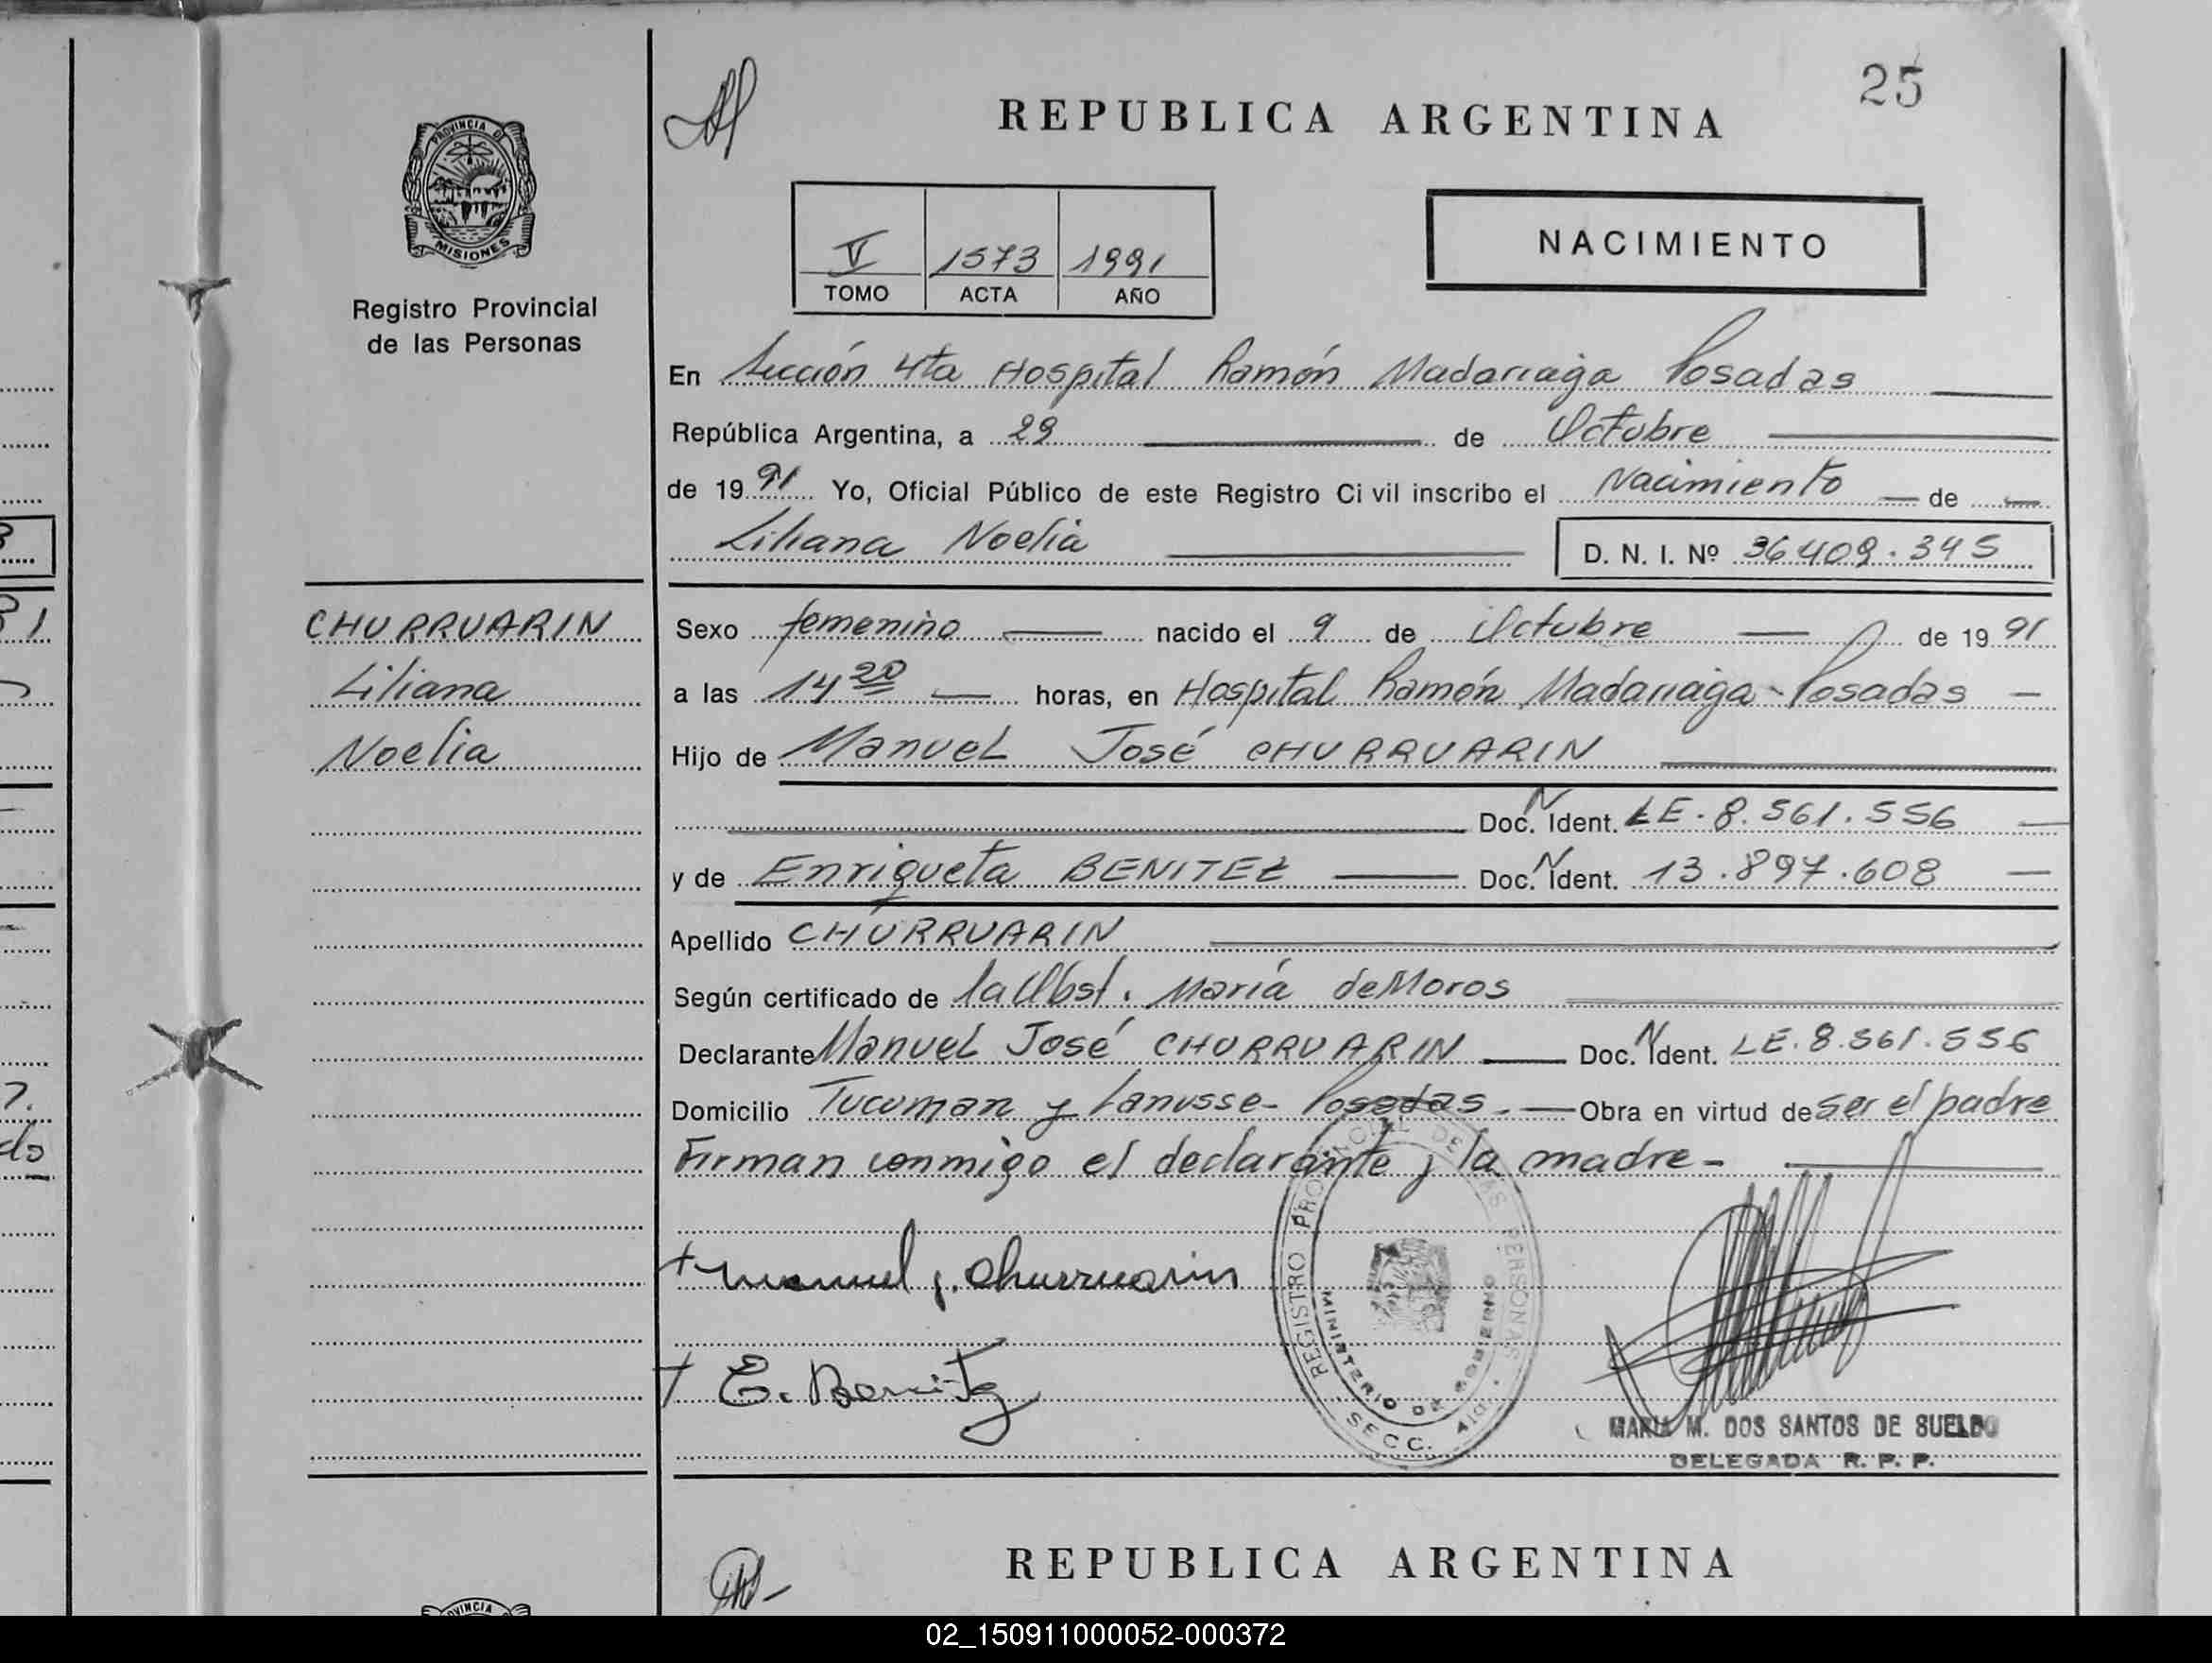 25
REPUBLICA ARGENTINA
PROVINCIA DE
MISIONES
Registro Provincial
de las Personas
V 1573 1991
TOMO ACTA AÑO
NACIMIENTO
En Sección 4ta Hospital Ramón Madariaga Posadas
República Argentina, a 29 de Octubre
de 1991 Yo, Oficial Público de este Registro Civil inscribo el Nacimiento de
Liliana Noelia D. N. I. Nº 36409.345
CHURRUARIN
Liliana
Noelia
Sexo femenino nacido el 9 de Octubre de 1991
a las 14 20 horas, en Hospital Ramón Madariaga - Posadas
Hijo de Manuel José CHURRUARIN
Doc. N Ident. LE. 8.561.556
y de Enriqueta BENITEZ Doc. N Ident. 13.897.608
Apellido CHURRUARIN
Según certificado de la Obst. María de Moros
Declarante Manuel José CHURRUARIN Doc. N Ident. LE. 8.561.556
Domicilio Tucuman y Lanusse - Posadas. Obra en virtud de ser el padre
Firman conmigo el declarante y la madre -
+ manuel j. churruarin
+ E. Benitez
REGISTRO PROVINCIAL DE LAS PERSONAS
MINISTERIO DE GOBIERNO
SECC. 4ta.
MARIA M. DOS SANTOS DE SUELDO
DELEGADA R. P. P.
REPUBLICA ARGENTINA
PROVINCIA
02_150911000052-000372